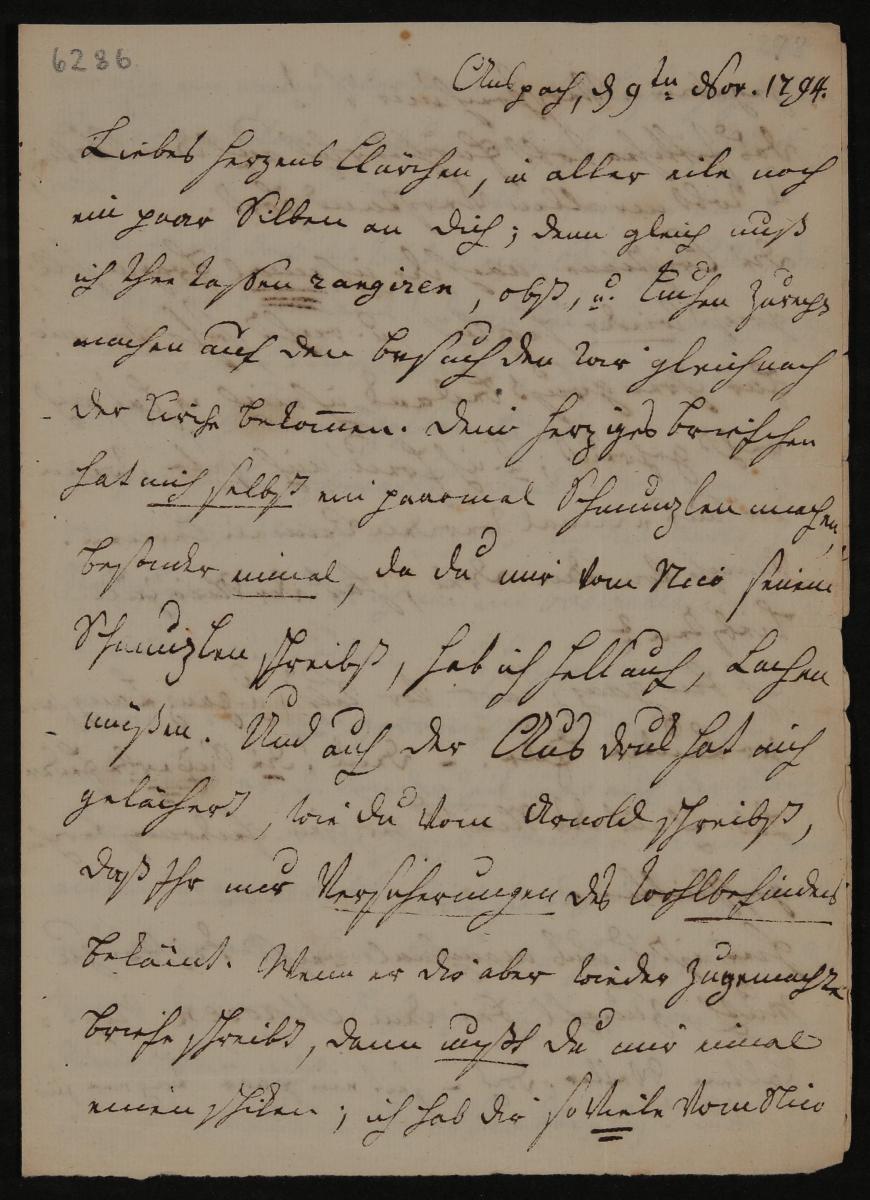 6286
Anspach, d 9tn dbor. 1794.
Liebes herzens Clärchen, in aller eile noch
ein paar Silben an dich; denn gleich muß
ich Thee taßen rangiren, obst, u. Kuchen zurecht
machen auf den besuch den wir gleich nach
der Kirche bekom̄en. dein herziges briefchen
hat mich selbst ein paarmal Schmunzlen machen,
besonder einmal, da du mir vom Nico seinem
Schmunzlen schreibst, hab ich hell auf, Lachen
müßen. Und auch der Ausdruk hat mich
gelächert, wie du vom Arnold schreibst,
daß Ihr nur Versicherungen des wohlbefindens
bekämt. Wenn er dir aber wieder zugemachte
briefe schreibt, dann mußt du mir einmal
einen schiken; ich hab dir so viele vom Nico